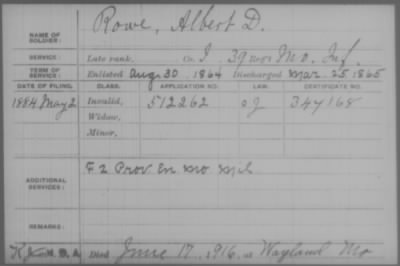 Rowe, Albert D.
NAME OF SOLDIER:
SERVICE: Late rank, Co. I, 39 Mo. Inf.
TERM OF SERVICE: Enlisted Aug. 30, 1864 Discharged Mar. 25, 1865
DATE OF FILING. CLASS. APPLICATION NO. LAW. CERTIFICATE NO.
1884 May 2 Invalid, 512262 347168
Widow,
Minor,
ADDITIONAL SERVICES: F 2 Prov. En. Mo. Mil
REMARKS:
Died June 17, 1916, at Wayland Mo